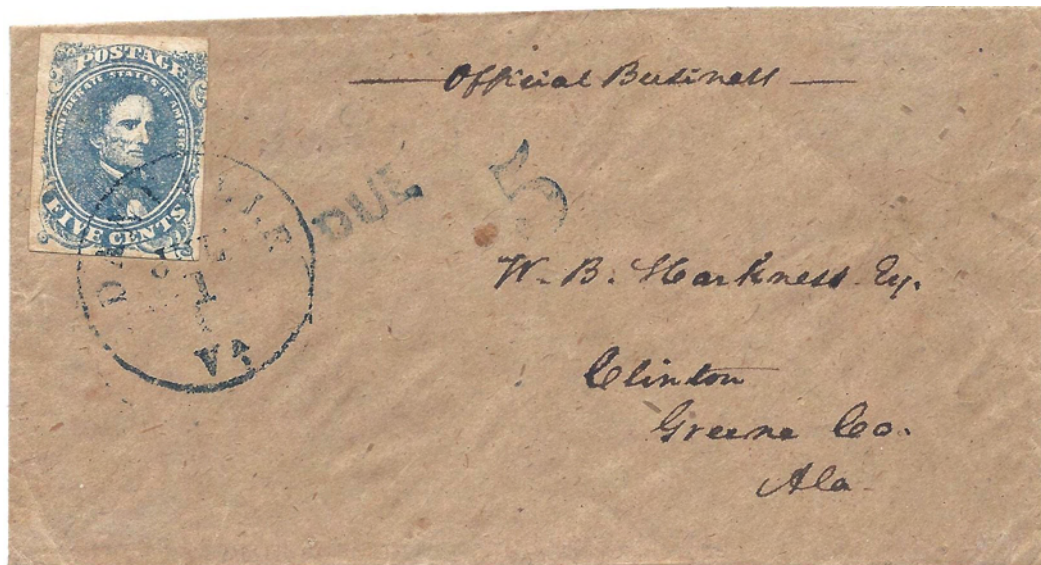 POSTAGE
CONFEDERATE STATES OF AMERICA
FIVE CENTS
Official Business
DANVILLE
JUL
1
VA
DUE 5
W. B. Harkness Esq.
Clinton
Greene Co.
Ala.